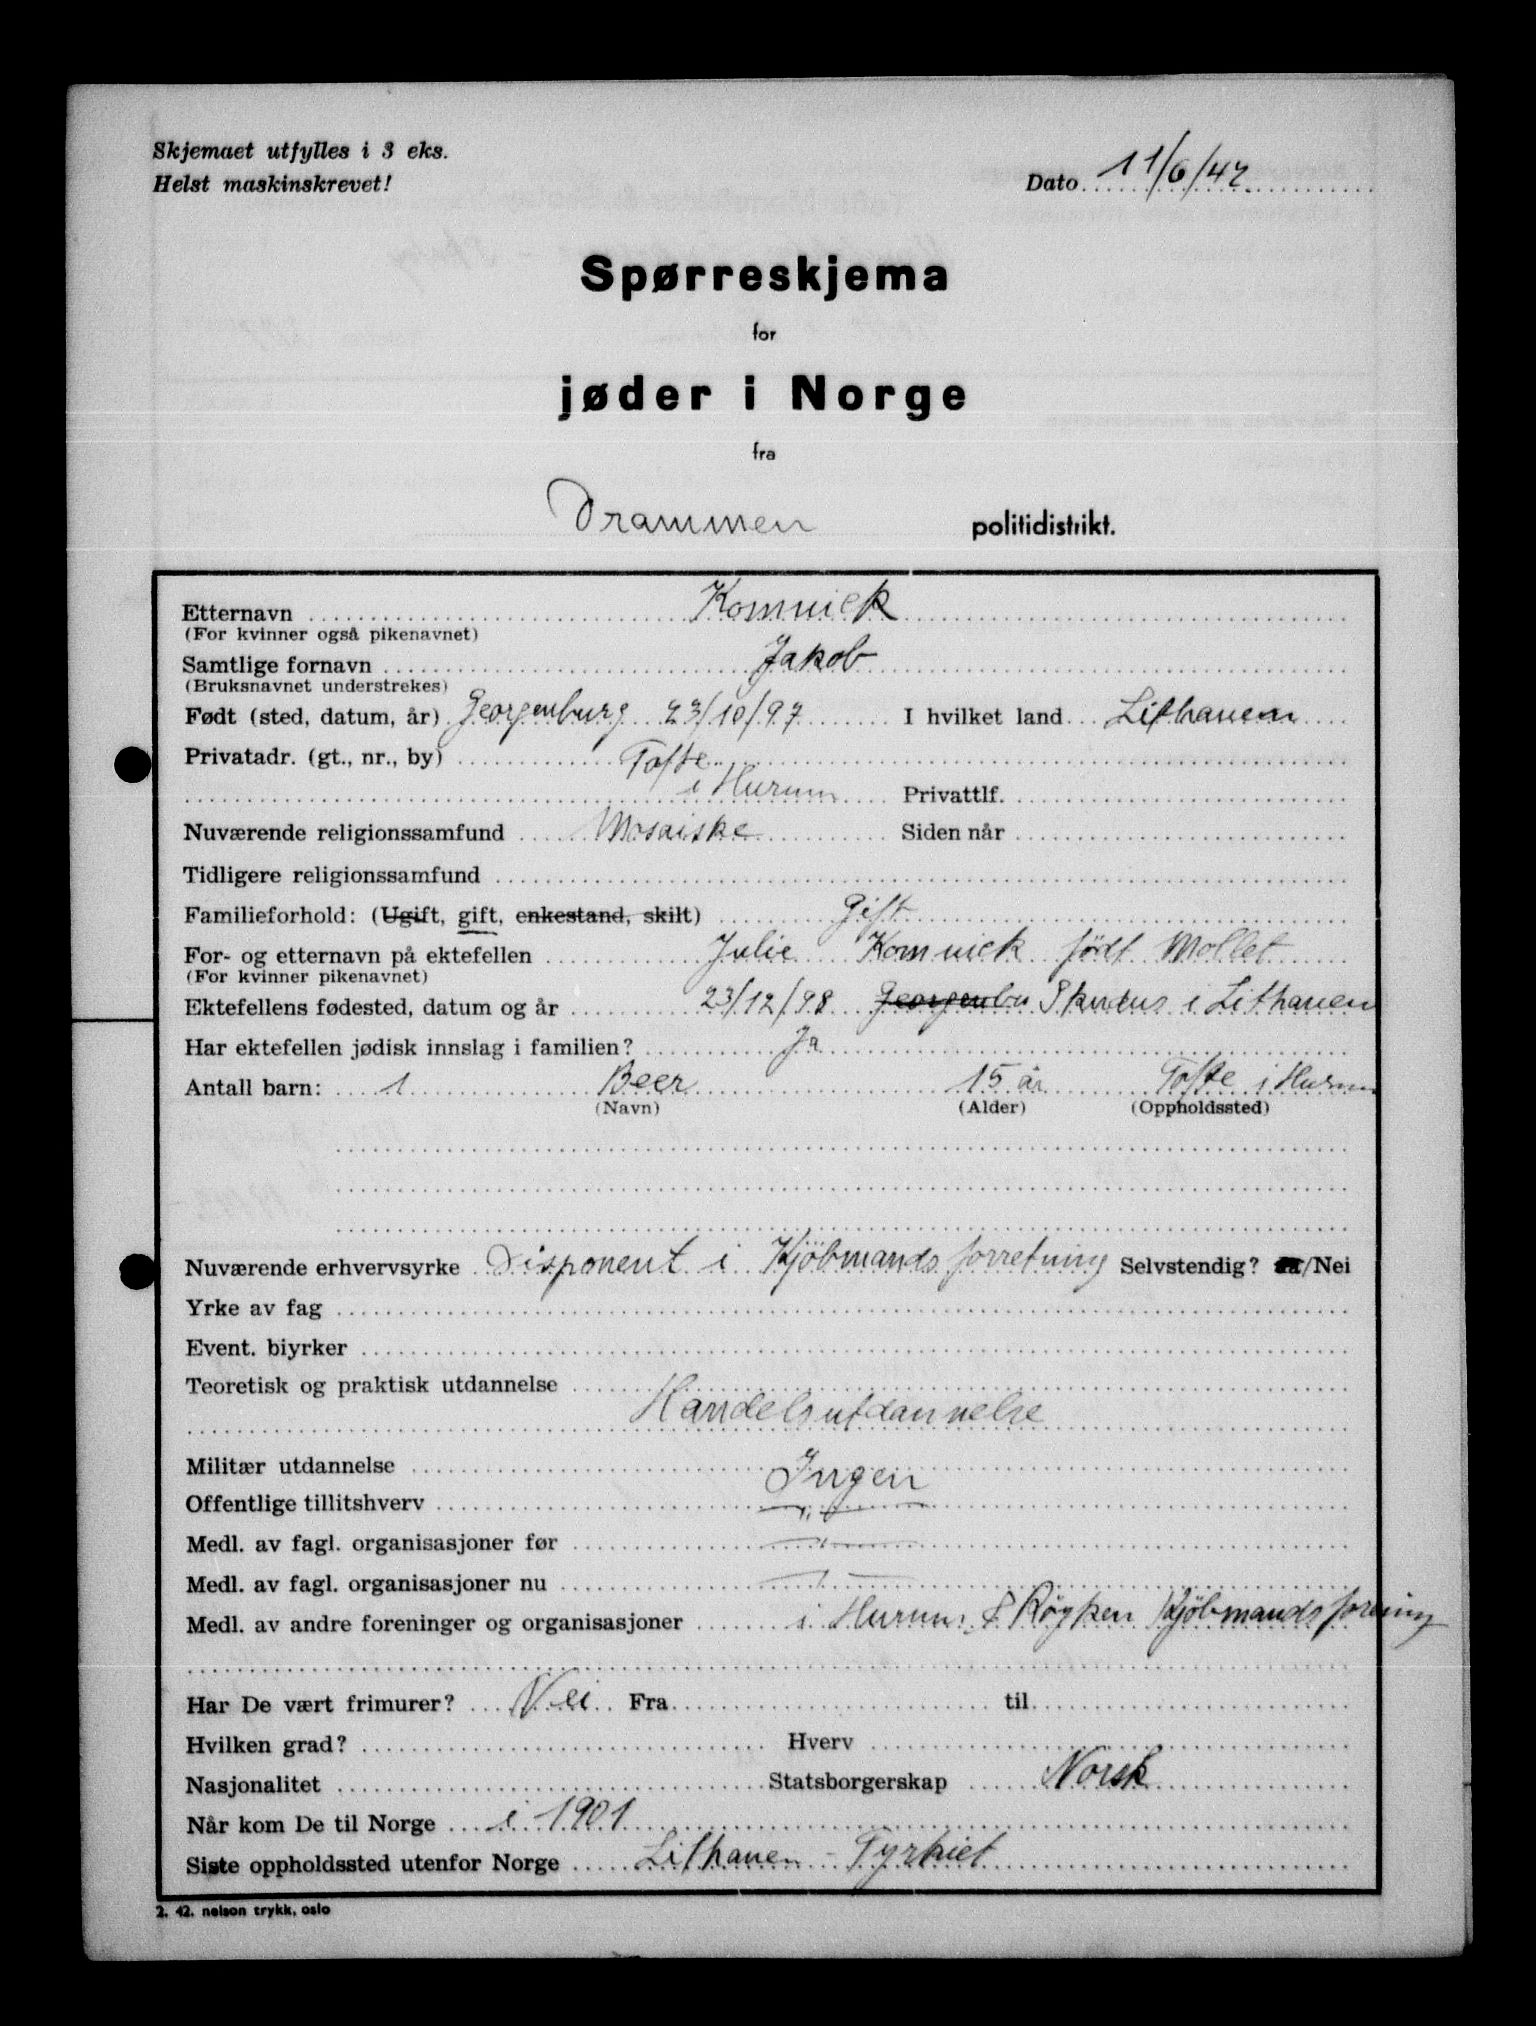 Skjemaet utfylles i 3 eks.
Helst maskinskrevet!
Dato 11/6/42
Spørreskjema
for
jøder i Norge
fra
Drammen politidistrikt.
Etternavn Komnick
(For kvinner også pikenavnet)
Samtlige fornavn Jakob
(Bruksnavnet understrekes)
Født (sted, datum, år) Georgenburg 23/10/97 I hvilket land Lithauen
Privatadr. (gt., nr., by) Tofte
i Hurum Privattlf.
Nuværende religionssamfund Mosaiske Siden når
Tidligere religionssamfund
Familieforhold: (Ugift, gift, enkestand, skilt) Gift
For- og etternavn på ektefellen Julie Komnick født Mollet
(For kvinner pikenavnet)
Ektefellens fødested, datum og år 23/12/98 Georgenbu Skudus i Lithauen
Har ektefellen jødisk innslag i familien? Ja
Antall barn: 1 Beer 15 år Tofte i Hurum
(Navn) (Alder) (Oppholdssted)
Nuværende erhvervsyrke Disponent i Kjöbmandsforretning Selvstendig? Ja/Nei
Yrke av fag
Event. biyrker
Teoretisk og praktisk utdannelse
Handelsutdannelse
Militær utdannelse Ingen
Offentlige tillitshverv — " —
Medl. av fagl. organisasjoner før — " —
Medl. av fagl. organisasjoner nu — " —
Medl. av andre foreninger og organisasjoner i Hurum & Røyken Kjöbmandsforening
Har De vært frimurer? Nei Fra til
Hvilken grad? Hverv
Nasjonalitet Statsborgerskap Norsk
Når kom De til Norge i 1901
Siste oppholdssted utenfor Norge Lithauen - Tyrkiet
2. 42. nelson trykk, oslo